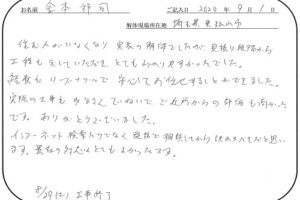 お名前 金本 祥司 ご記入日 2020年9月1日
解体現場所在地 埼玉県東松山市
住む人がいなくなり実家の解体でしたが、見積り段階から
工程も示していただきとてもわかりやすかったです。
経費もリーズナブルで安心してお任せすることができました。
実際の工事もまわりていねいでご近所からの評価も高かった
です。ありがとうございました。
インターネット検索だけでなく直接で相談してから決めるべきだと思い
ます。業者の対応はとてもよかったです。
8/29(土) 工事終了